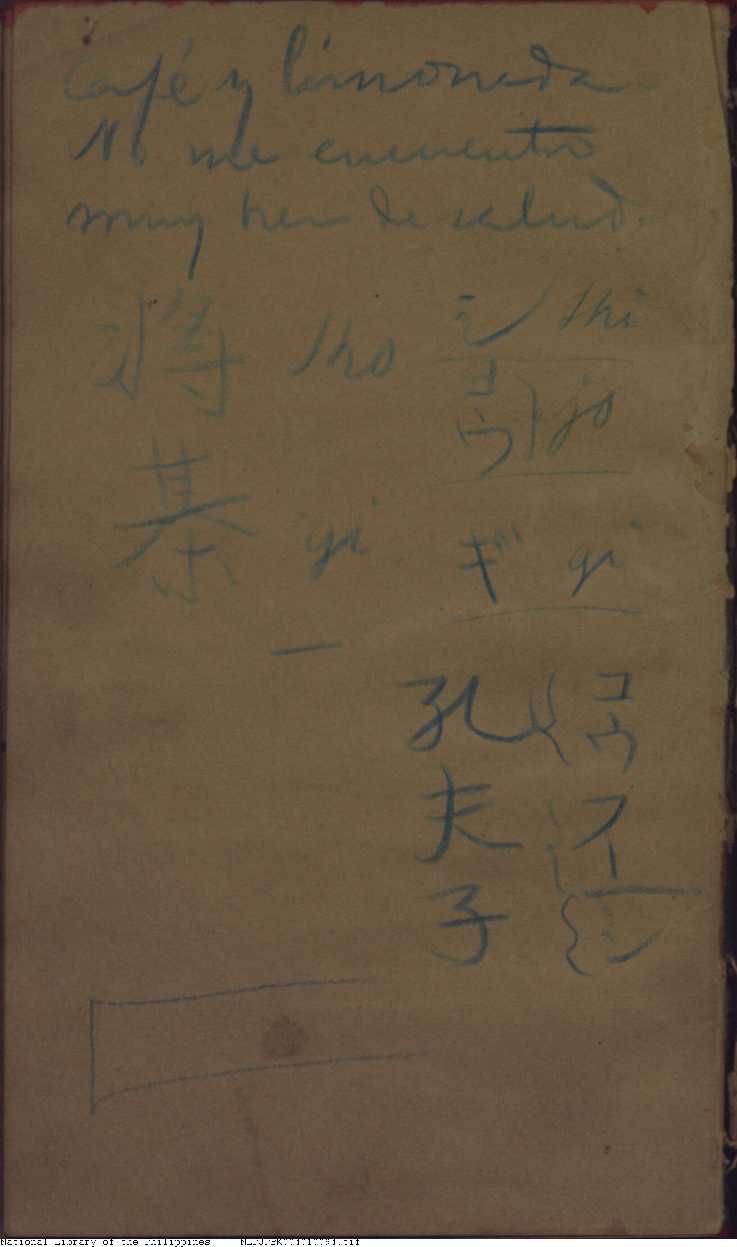 Café y limonada
No me encuentro
muy bien de salud.
將 sho シ shi
ョウ jo
棊 gi ギ gi
孔夫子 コウフーシ
National Library of the Philippines